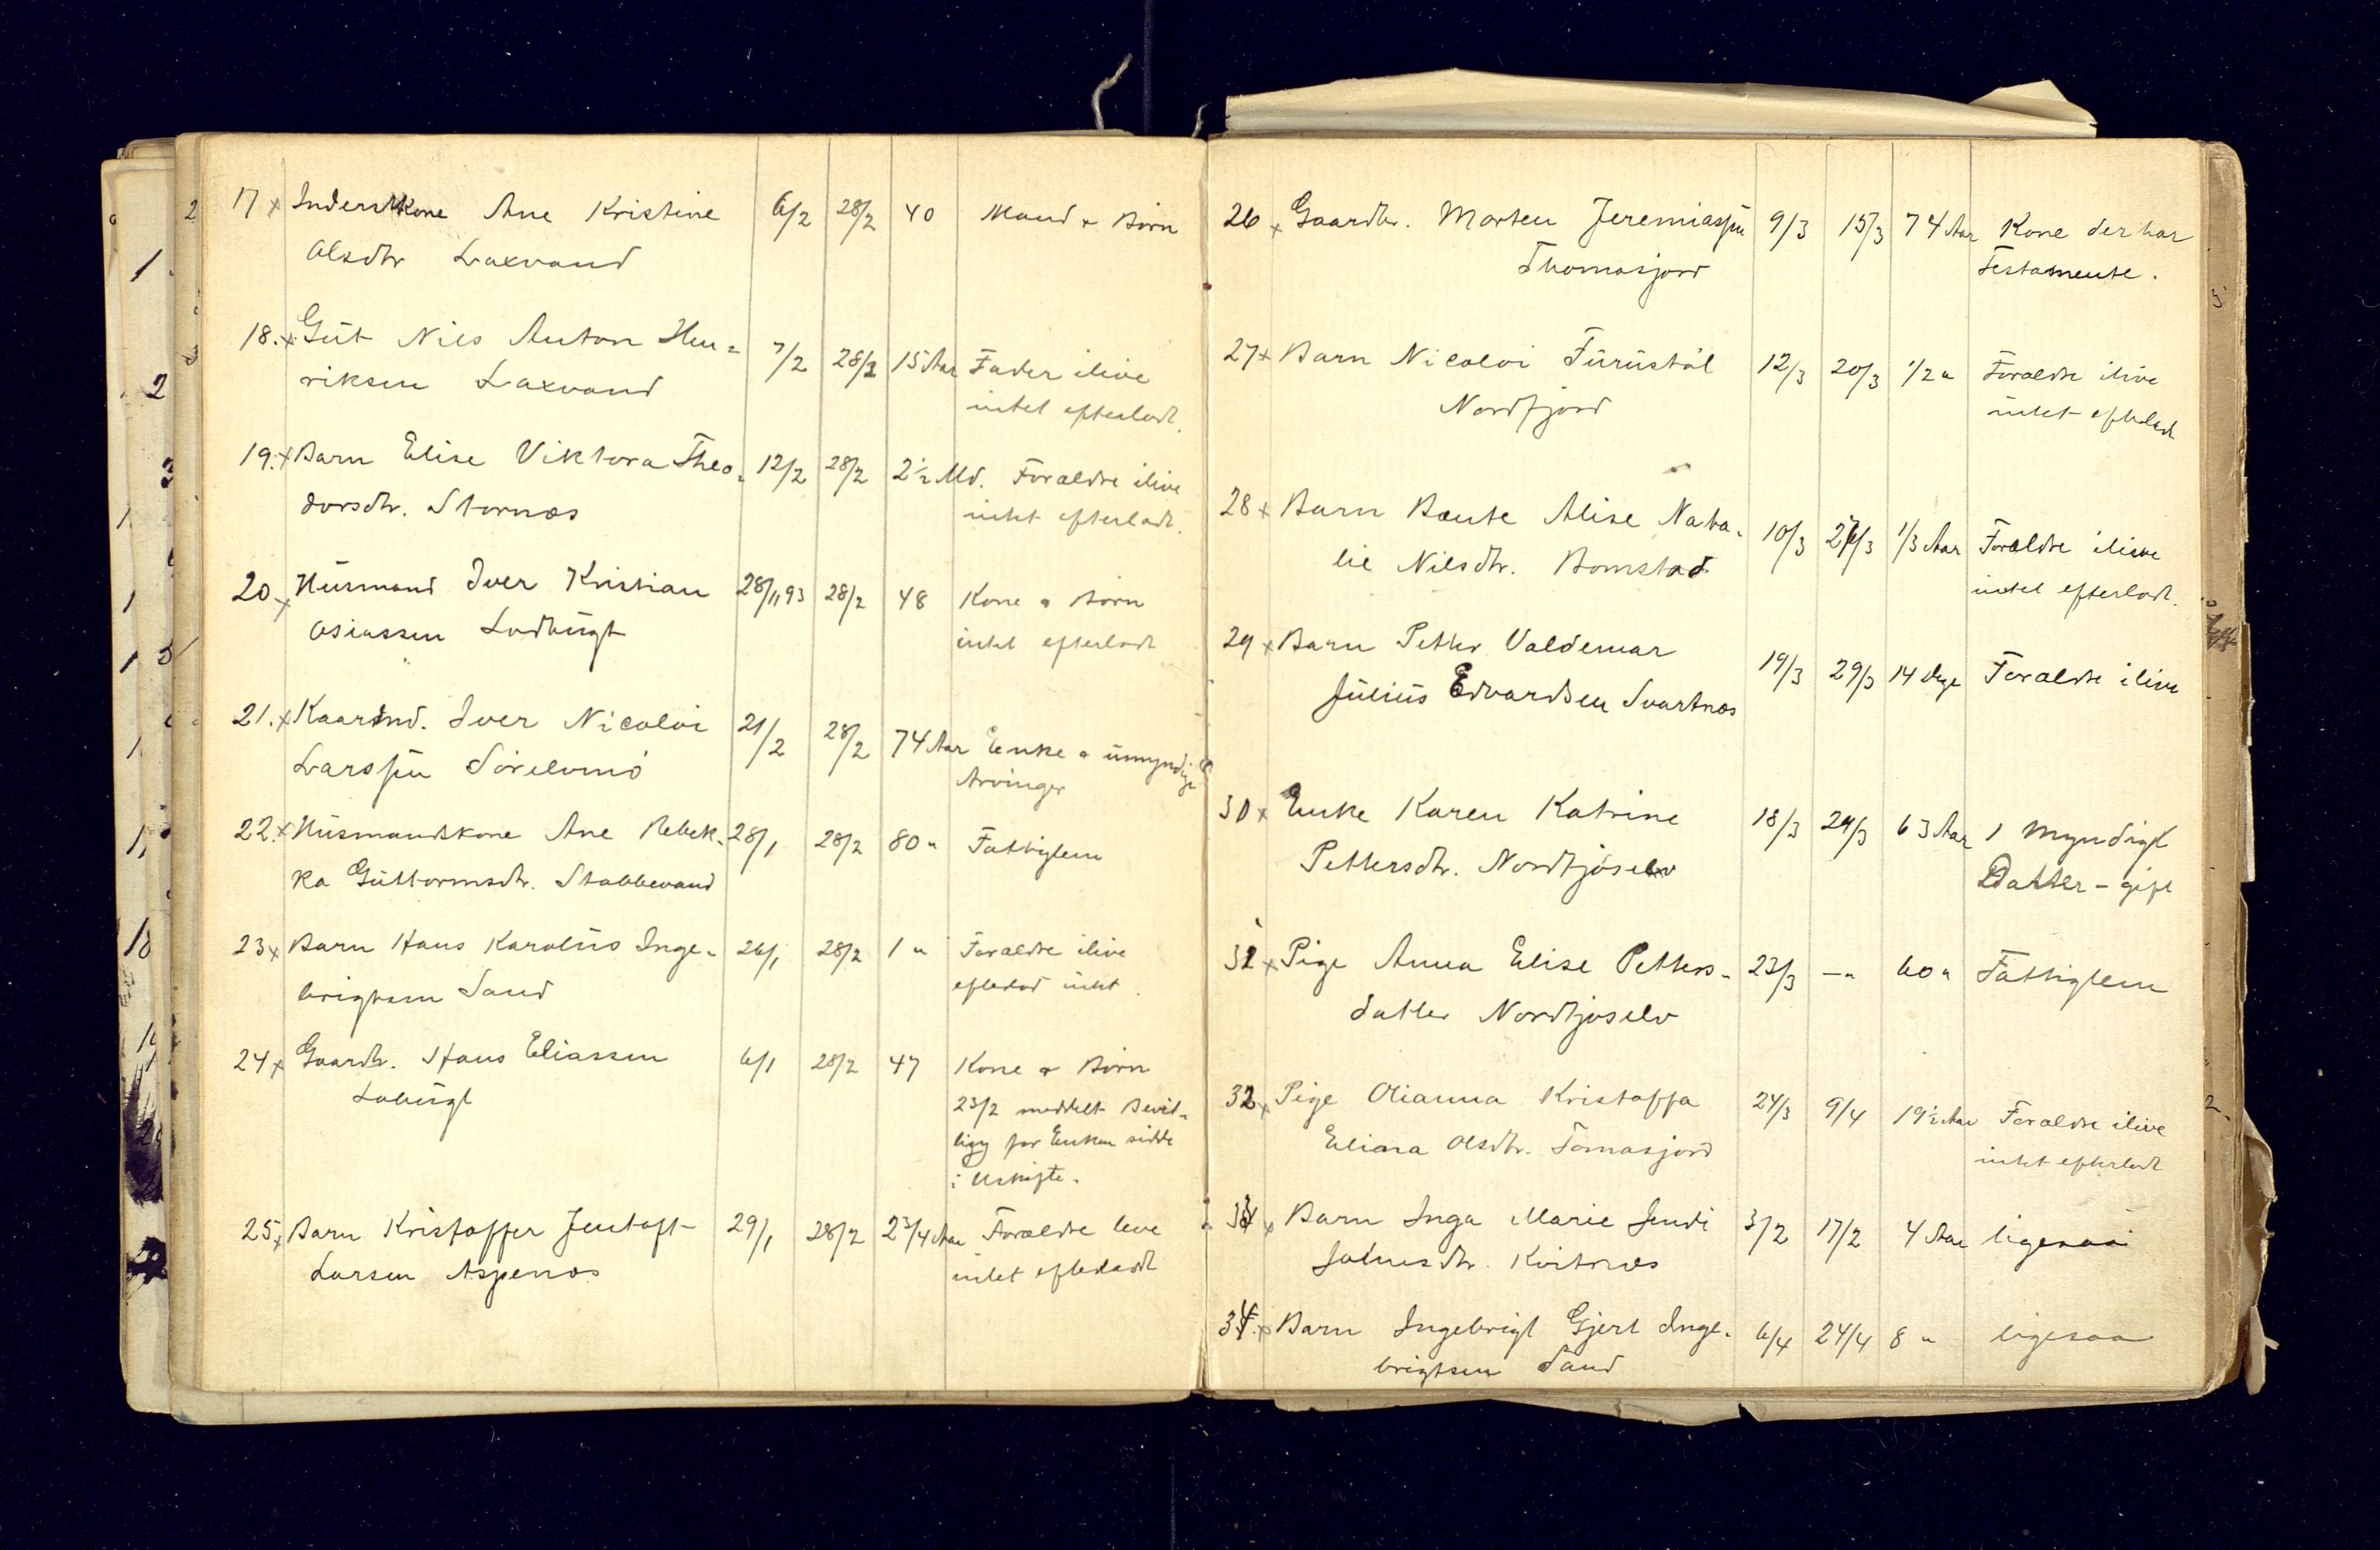 17 x Inderstkone Ane Kristine 6/2 28/2 40 Mand & Børn
Olsdtr Laxvand
18. x Gut Nils Anton Hen= 7/2 28/2 15 Aar Fader ilive
riksen Laxvand intet efterladt.
19. x Barn Elise Viktora Theo= 12/2 28/2 2½ Md. Forældre ilive
dorsdtr. Stornæs intet efterladt.
20 x Husmand Iver Kristian 28/11 93 28/2 48 Kone & Børn
Osiassen Lodbugt intet efterladt
21. x Kaarmd. Iver Nicolai 21/2 28/2 74 Aar Enke & umyndige
Larssen Sørelvmo Arvinger
22. x Husmandskone Ane Rebek- 28/1 28/2 80 " Fattiglem
ka Guttormsdtr. Stabbevand
23 x Barn Hans Karolus Inge- 26/1 28/2 1 " Forældre ilive
brigtsen Sand efterlad intet.
24 x Gaardbr. Hans Eliassen 6/1 28/2 47 Kone & Børn
Lobugt 23/2 meddelt Bevil=
ligg for Enken sidde
i Uskifte.
25 x Barn Kristoffer Jentoft 29/1 28/2 2 3/4 Aar Forældre leve
Larsen Aspenæs intet efterladt
26 x Gaardbr. Morten Jeremiassen 9/3 15/3 74 Aar Kone der har
Thomasjord Testamente.
27 x Barn Nicolai Furustøl 12/3 20/3 1/2 " Forældre ilive
Nordfjord intet efterladt
28 x Barn Bente Alise Nata- 10/3 27/3 1/3 Aar Forældre ilive
lie Nilsdtr. Bomstad intet efterladt.
29 x Barn Petter Valdemar 19/3 29/3 14 Dge Forældre ilive
Julius Edvardsen Svartnæs
30 x Enke Karen Katrine 18/3 29/3 63 Aar 1 Myndigt
Pettersdtr. Nordkjoselv Datter - gift
31 x Pige Anna Elise Petters- 23/3 — " 60 " Fattiglem
datter Nordkjoselv
32 x Pige Olianna Kristoffa 24/3 9/4 19½ Aar Forældre ilive
Eliana Olsdtr. Tomasjord intet efterladt
33 x Barn Inga Marie Jendi 3/2 17/2 4 Aar ligesaa
Johnsdtr. Kvitnæs
34. x Barn Ingebrigt Gjert Inge- 6/4 24/4 8 " ligesaa
brigtsen Sand